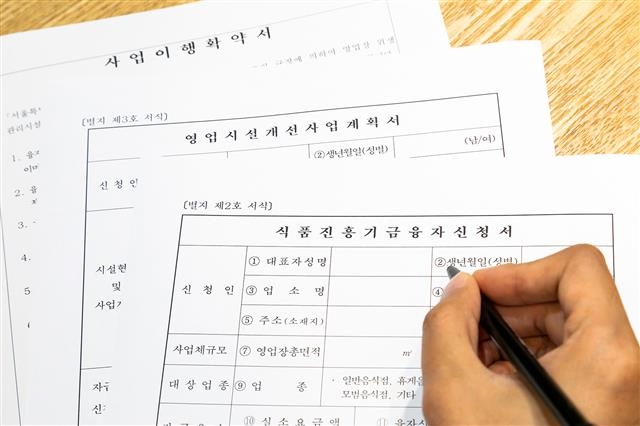 사업이행확약서
규정에 의하여 영업장 위생
「서울특
관리시설
1. 융
2. 융
3.
4.
5.
[별지 제3호 서식]
영업시설개선사업계획서
②생년월일(성별)
(남/여)
신청인
시설현
및
사업
자
신
[별지 제2호 서식]
식품진흥기금융자신청서
신청인
① 대표자성명
②생년월일(성별)
③ 업소명
④
⑤ 주소(소재지)
사업체규모
⑦ 영업장총면적
㎡
대상업종
⑨ 업종
· 일반음식점, 휴게음
모범음식점, 기타
⑩ 실소요금액
⑪ 융자신